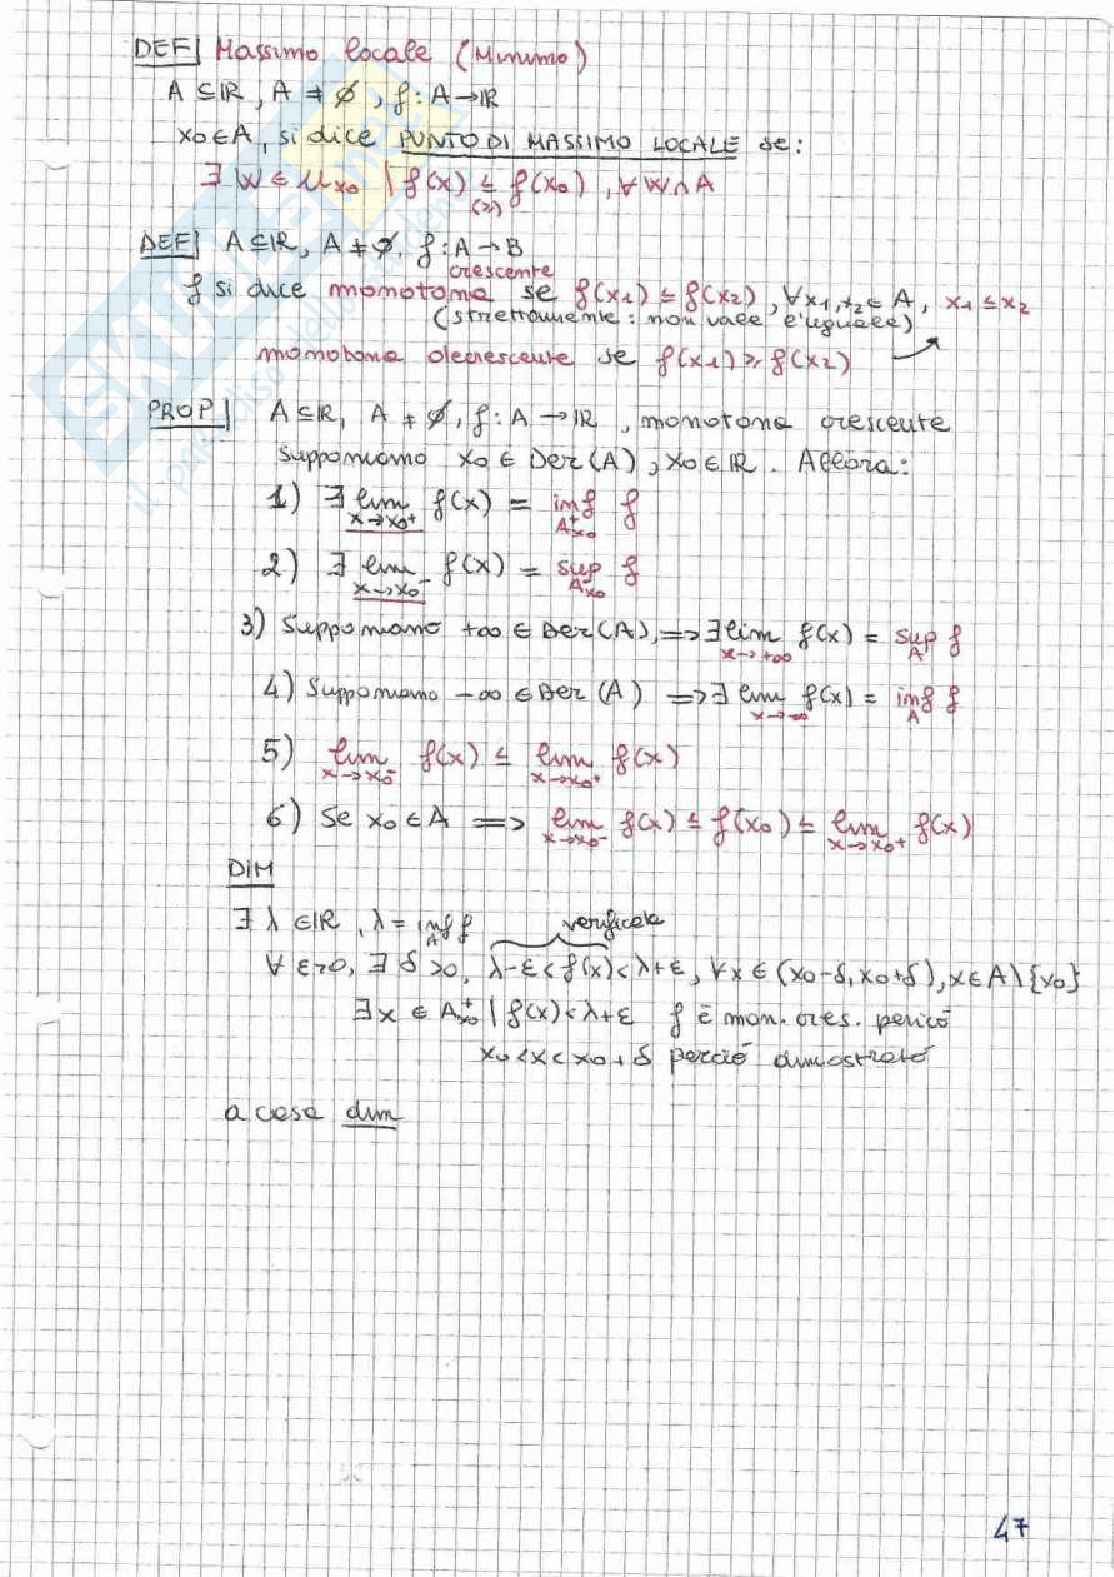 DEF| Massimo locale (Minimo)
A ⊆ ℝ, A ≠ ∅, f: A → ℝ
x₀ ∈ A, si dice PUNTO DI MASSIMO LOCALE se:
∃ W ∈ 𝒰x₀ | f(x) ≤ f(x₀), ∀ W ∩ A
(≥)
DEF| A ⊆ ℝ, A ≠ ∅, f: A → B
crescente
f si dice monotona se f(x₁) ≤ f(x₂), ∀x₁, x₂ ∈ A, x₁ ≤ x₂
(strettamente: non vale l'uguale)
monotona decrescente se f(x₁) ≥ f(x₂)
PROP| A ⊆ ℝ, A ≠ ∅, f: A → ℝ, monotona crescente
Supponiamo x₀ ∈ Der(A), x₀ ∈ ℝ. Allora:
1) ∃ lim x→x₀⁺ f(x) = inf A⁺x₀ f
2) ∃ lim x→x₀⁻ f(x) = sup A⁻x₀ f
3) Supponiamo +∞ ∈ Der(A), ⟹ ∃ lim x→+∞ f(x) = sup A f
4) Supponiamo -∞ ∈ Der(A) ⟹ ∃ lim x→-∞ f(x) = inf A f
5) lim x→x₀⁻ f(x) ≤ lim x→x₀⁺ f(x)
6) Se x₀ ∈ A ⟹ lim x→x₀⁻ f(x) ≤ f(x₀) ≤ lim x→x₀⁺ f(x)
DIM
∃ λ ∈ ℝ, λ = inf A f verificata
∀ ε>0, ∃ δ>0, λ-ε < f(x) < λ+ε, ∀x ∈ (x₀-δ, x₀+δ), x ∈ A\{x₀}
∃x ∈ A⁺x₀ | f(x) < λ+ε f è mon. cres. perciò
x₀ < x < x₀ + δ perciò dimostrato
a casa dim
47